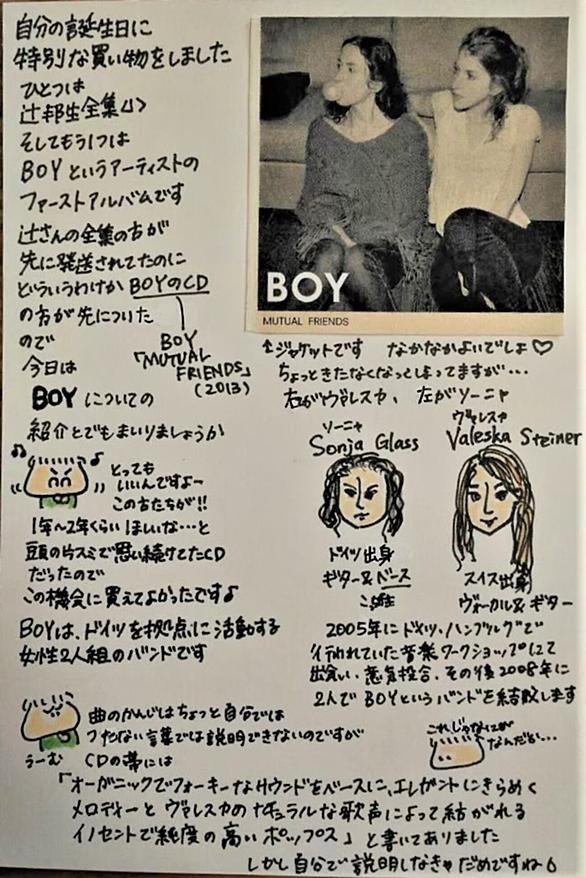 自分の誕生日に
特別な買い物をしました
ひとつは
辻邦生全集4>
そしてもう1つは
BOYというアーティストの
ファーストアルバムです
辻さんの全集の方が
先に発送されてたのに
どういうわけかBOYのCD
の方が先についた
ので
今日は
BOY
「MUTUAL
FRIENDS」
(2013)
BOYについての
紹介とでもまいりましょうか
とっても
いいんですよ〜
この方たちが!!
1年〜2年くらいほしいな…と
頭の片スミで思い続けてたCD
だったので
この機会に買えてよかったです♪
BOYは、ドイツを拠点に活動する
女性2人組のバンドです
BOY
MUTUAL FRIENDS
↑ジャケットです なかなかよいでしょ♡
ちょっときたなくなっしまってますが…
右がヴァレスカ、左がソーニャ
ソーニャ
Sonja Glass
ヴァレスカ
Valeska Steiner
ドイツ出身
ギター&ベース
スイス出身
ヴォーカル&ギター
2005年にドイツ、ハンブルグで
行われていた音楽ワークショップにて
出会い、意気投合、その後2008年に
2人でBOYというバンドを結成します
曲のかんじはちょっと自分では
つたない言葉では説明できないのですが
うーむ CDの帯には
これじゃなにが
なんだか…
「オーガニックでフォーキーなサウンドをベースに、エレガントにきらめく
メロディーとヴァレスカのナチュラルな歌声によって結がれる
イノセントで純度の高いポップス」と書いてありました
しかし自分で説明しなきゃだめですね